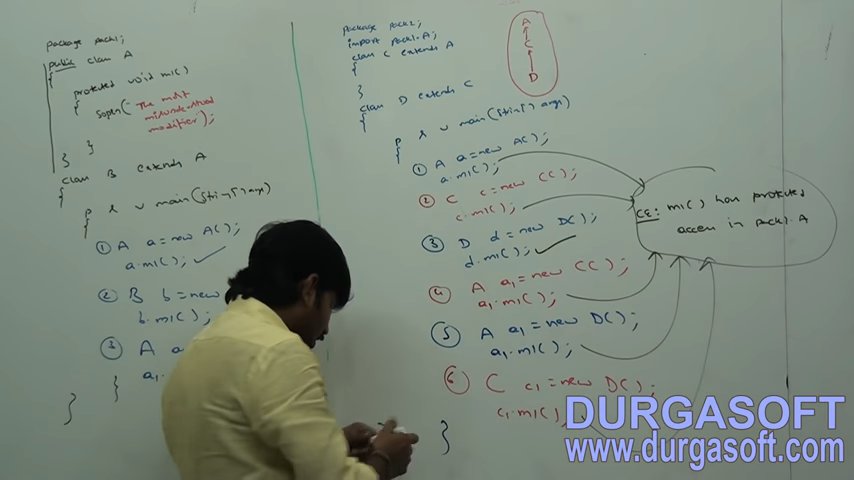 package pack1;
public class A
{
protected void m1()
{
sopln("The most
misunderstood
modifier");
}
}
class B extends A
{
p s v main(String[] args)
{
① A a=new A();
a.m1();
② B b=new
b.m1();
③ A
a1.
}
}
package pack2;
import pack1.A;
class C extends A
{
}
class D extends C
{
p s v main(String[] args)
{
① A a=new A();
a.m1();
② C c=new C();
c.m1();
③ D d=new D();
d.m1();
④ A a1=new C();
a1.m1();
⑤ A a1=new D();
a1.m1();
⑥ C c1=new D();
c1.m1();
}
A
C
D
CE: m1() has protected
access in pack1.A
DURGASOFT
www.durgasoft.com